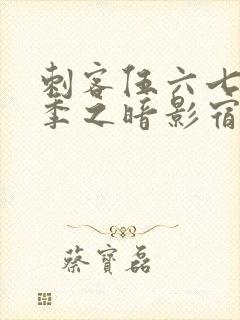 刺客伍六七
季之暗影宿
蔡寶磊